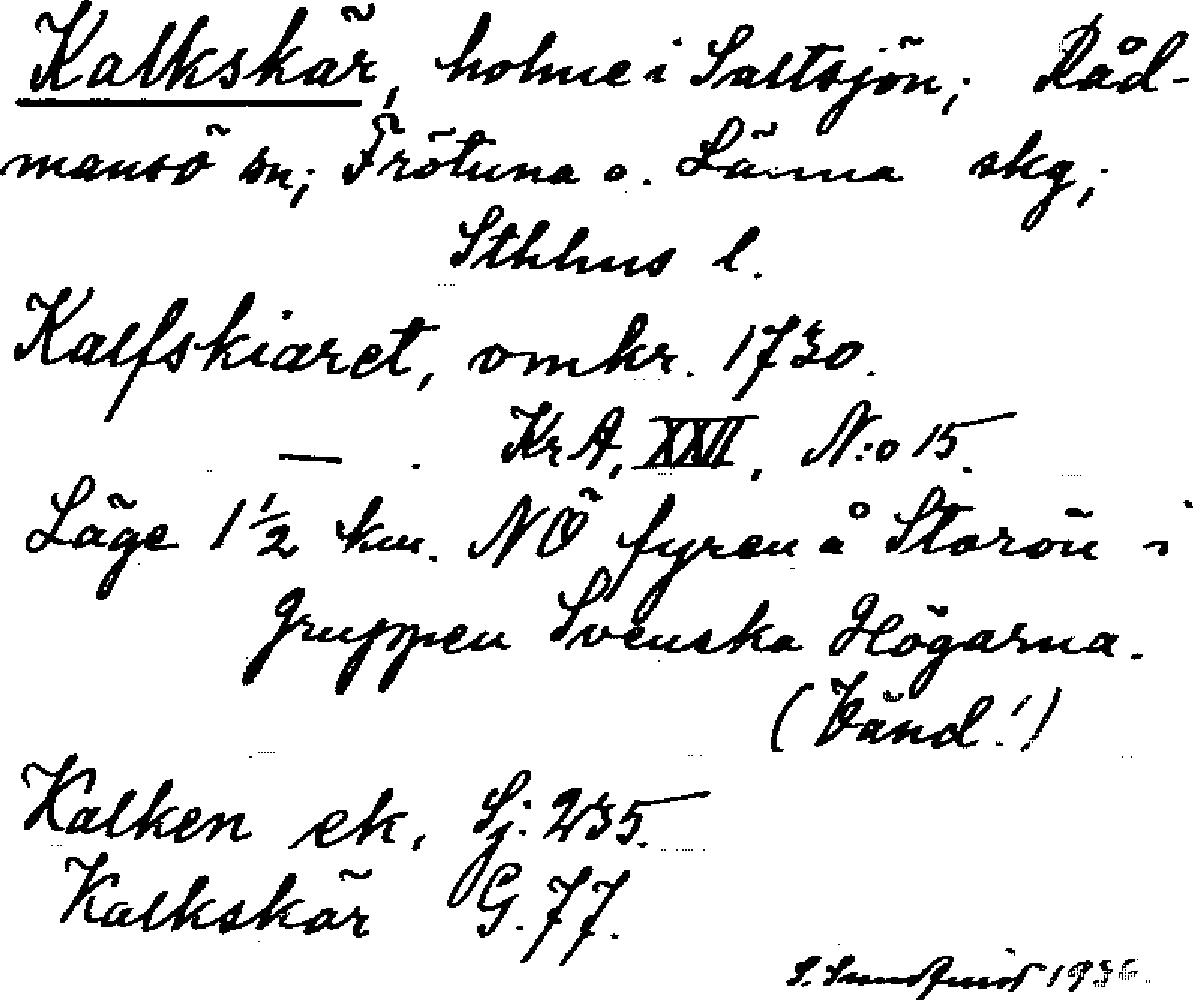 Kalkskär, holme i Saltsjön; Råd-
mansö sn; Frötuna o. Länna skg;
Sthlms l.
Kalfskiaret, omkr. 1730.
— . KrA, XXII, N:o 15.
Läge 1½ km. NÖ fyren å Storön i
gruppen Svenska Högarna.
(Vänd!)
Kalken ek. Sj. 235.
Kalkskär G. 77.
1936.